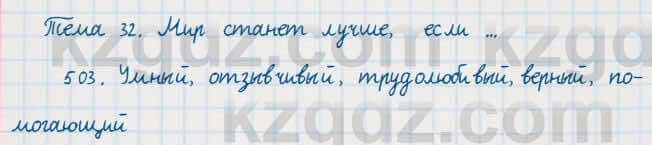 Тема 32. Мир станет лучше, если ...
503. Умный, отзывчивый, трудолюбивый, верный, по-
могающий
kzgdz.com
kzgdz.com